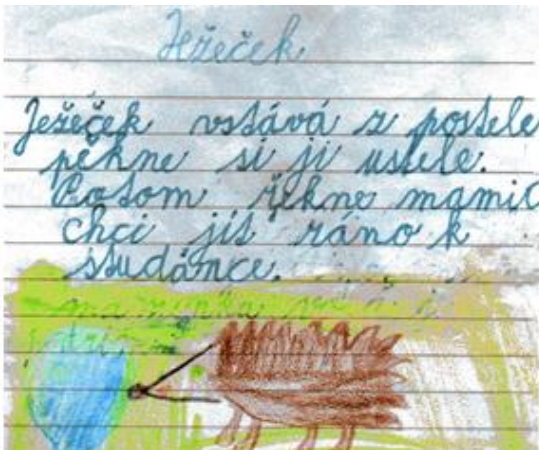 Ježeček
Ježeček vstává z postele
pěkne si ji ustele.
Potom řekne mamic
chci jít ráno k
studánce.
maminka